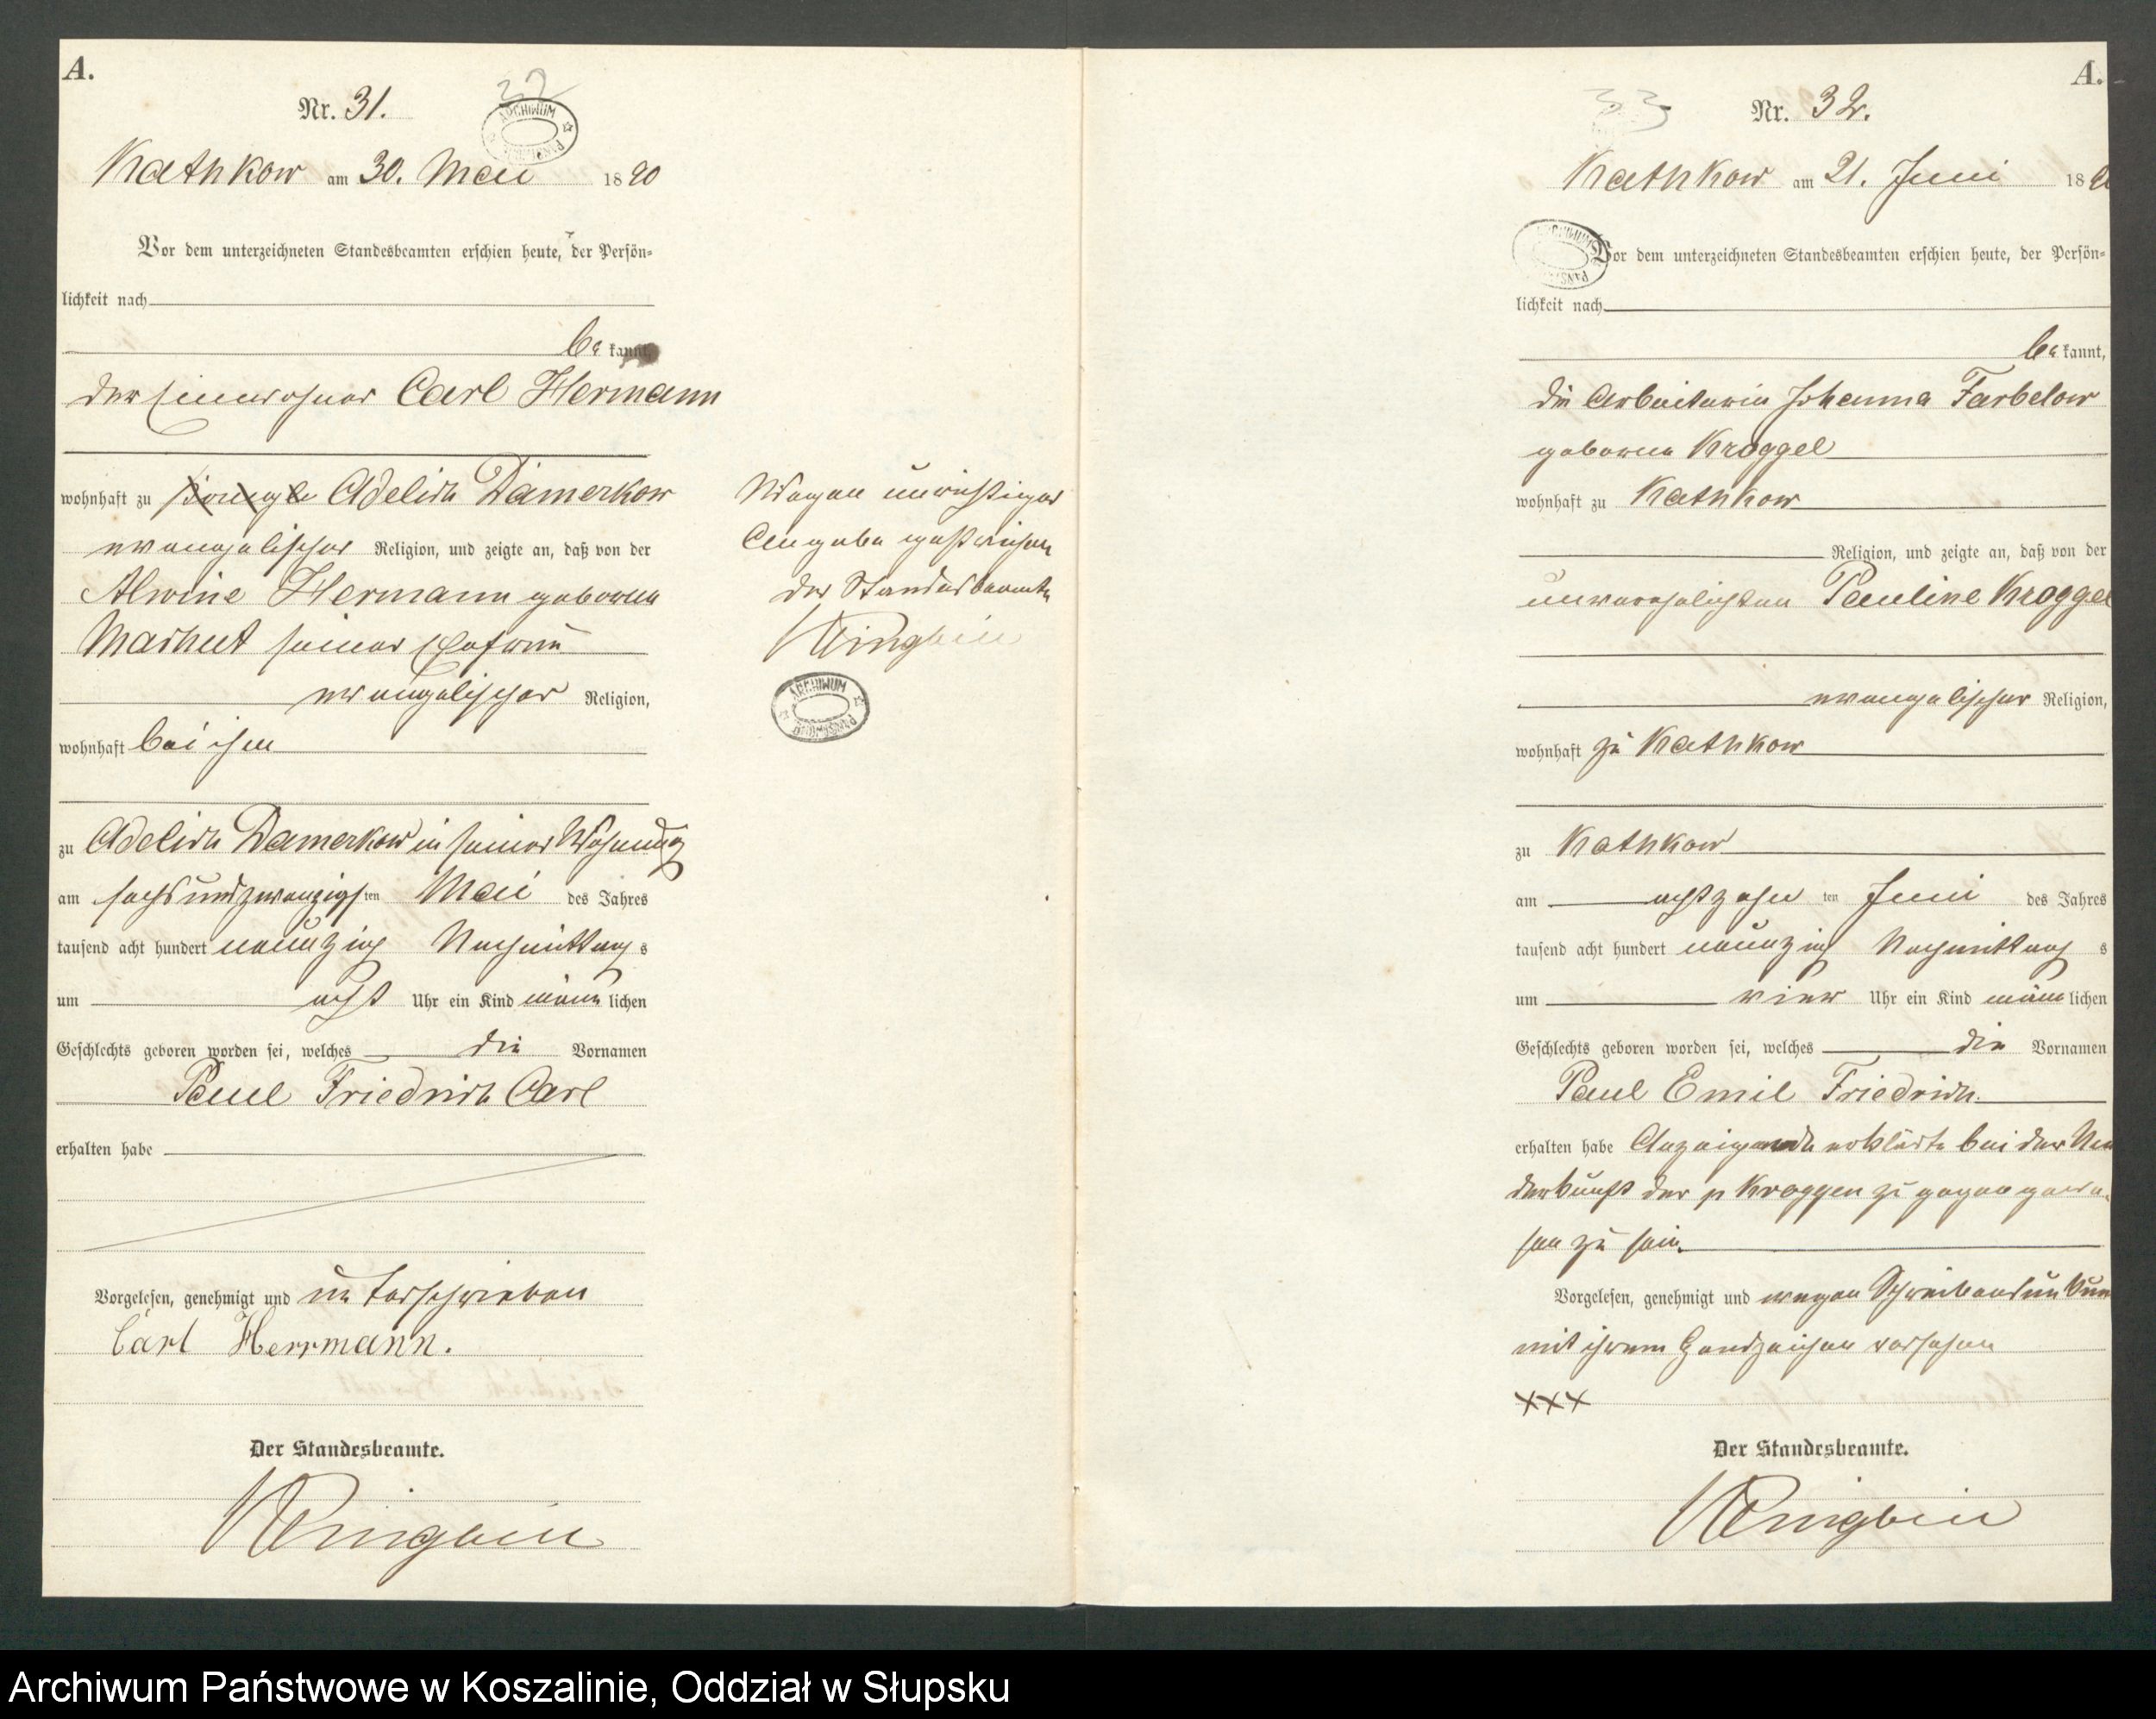 A.
Nr. 31.
32
ARCHIWUM
Kathkow am 30. Mai 1890
Vor dem unterzeichneten Standesbeamten erschien heute, der Persön-
lichkeit nach
be kannt,
der Einwohner Carl Hermann
wohnhaft zu Adelich Damerkow
evangelischer Religion, und zeigte an, daß von der
Alwine Hermann geborene
seiner Ehefrau
evangelischer Religion,
wohnhaft bei ihm
zu Adelich Damerkow in seiner Wohnung
am sechsundzwanzigsten Mai des Jahres
tausend acht hundert neunzig Nachmittags
um acht Uhr ein Kind männlichen
Geschlechts geboren worden sei, welches die Vornamen
Paul Friedrich Carl
erhalten habe
Vorgelesen, genehmigt und unterschrieben
Carl Herrmann.
Der Standesbeamte.
Wegen unrichtiger
Angabe gestrichen
der Standesbeamte
ARCHIWUM
A.
33
Nr. 32.
Kathkow am 21. Juni 18
Vor dem unterzeichneten Standesbeamten erschien heute, der Persön-
lichkeit nach
be kannt,
die Arbeiterin Johanna Farbelow
geborene Kroggel
wohnhaft zu Kathkow
Religion, und zeigte an, daß von der
unverehelichten Pauline Kroggel
evangelischer Religion,
wohnhaft zu Kathkow
zu Kathkow
am achtzehnten Juni des Jahres
tausend acht hundert neunzig Nachmittags
um vier Uhr ein Kind männlichen
Geschlechts geboren worden sei, welches die Vornamen
Paul Emil Friedrich.
erhalten habe Anzeigende erklärte bei der Nie
derkunft der p Kroggen zugegen gewe-
sen zu sein.
Vorgelesen, genehmigt und wegen Schreibensunkun
mit ihrem Handzeichen versehen
+++
Der Standesbeamte.
Archiwum Państwowe w Koszalinie, Oddział w Słupsku